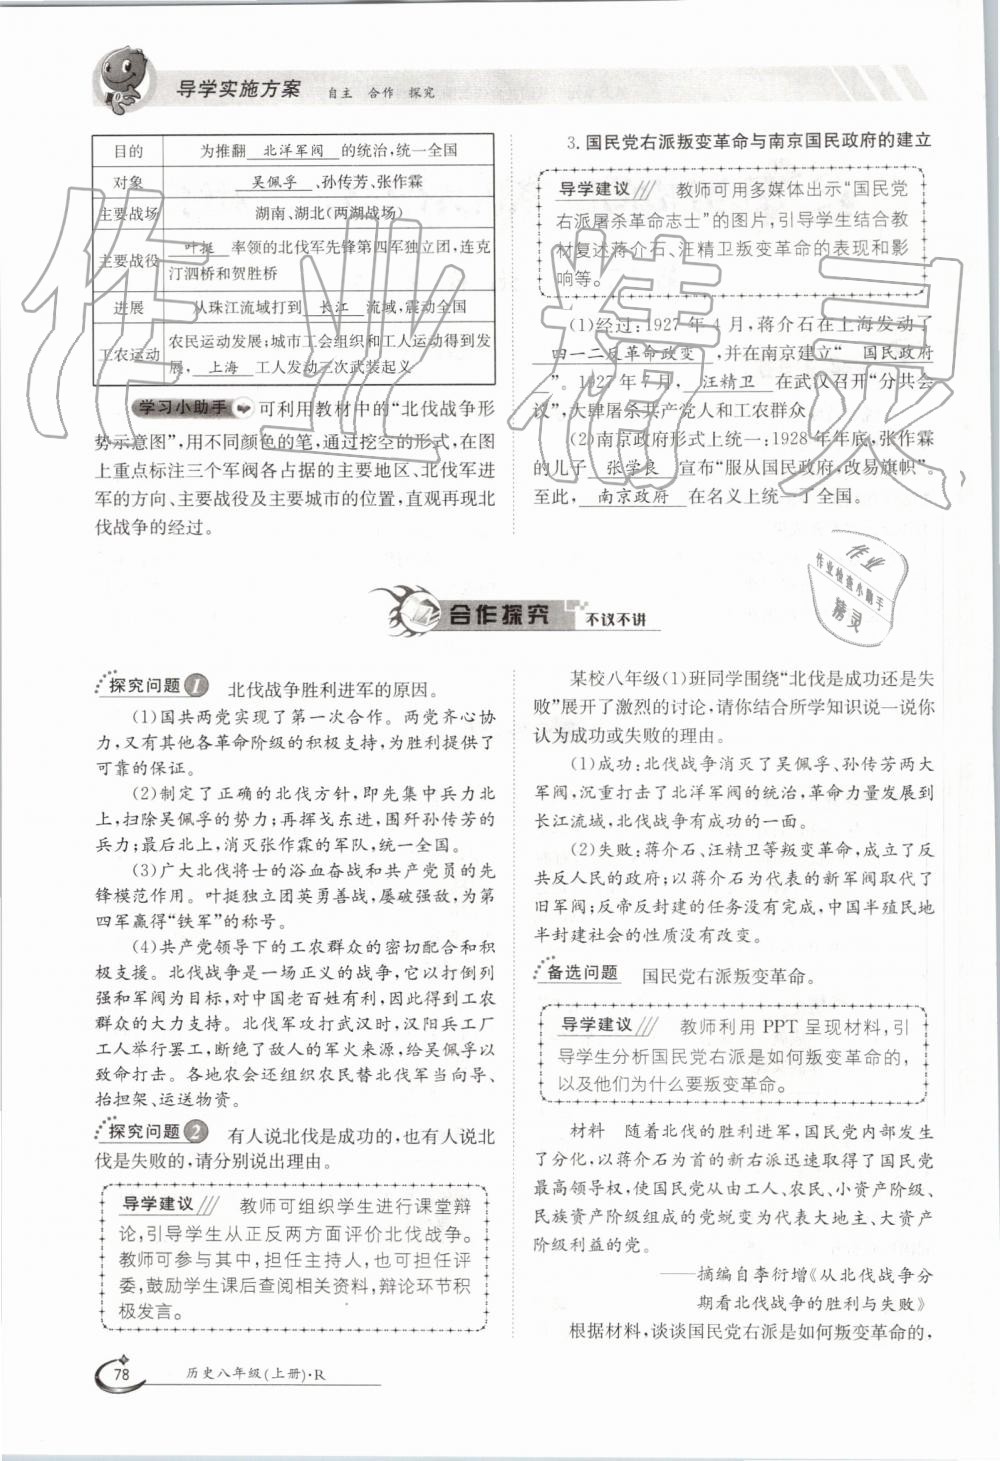 导学实施方案 自主 合作 探究
目的 为推翻 北洋军阀 的统治,统一全国
对象 吴佩孚 、孙传芳、张作霖
主要战场 湖南、湖北(两湖战场)
主要战役 叶挺 率领的北伐军先锋第四军独立团,连克
汀泗桥和贺胜桥
进展 从珠江流域打到 长江 流域,震动全国
工农运动 农民运动发展;城市工会组织和工人运动得到发
展, 上海 工人发动三次武装起义
学习小助手 可利用教材中的“北伐战争形
势示意图”,用不同颜色的笔,通过挖空的形式,在图
上重点标注三个军阀各占据的主要地区、北伐军进
军的方向、主要战役及主要城市的位置,直观再现北
伐战争的经过。
3.国民党右派叛变革命与南京国民政府的建立
导学建议 教师可用多媒体出示“国民党
右派屠杀革命志士”的图片,引导学生结合教
材复述蒋介石、汪精卫叛变革命的表现和影
响等。
(1)经过:1927 年 4 月,蒋介石在上海发动了
四一二反革命政变 ,并在南京建立“ 国民政府
”。1927 年 7 月, 汪精卫 在武汉召开“分共会
议”,大肆屠杀共产党人和工农群众。
(2)南京政府形式上统一:1928 年年底,张作霖
的儿子 张学良 宣布“服从国民政府,改易旗帜”。
至此, 南京政府 在名义上统一了全国。
合作探究 不议不讲
探究问题1 北伐战争胜利进军的原因。
(1)国共两党实现了第一次合作。两党齐心协
力,又有其他各革命阶级的积极支持,为胜利提供了
可靠的保证。
(2)制定了正确的北伐方针,即先集中兵力北
上,扫除吴佩孚的势力;再挥戈东进,围歼孙传芳的
兵力;最后北上,消灭张作霖的军队,统一全国。
(3)广大北伐将士的浴血奋战和共产党员的先
锋模范作用。叶挺独立团英勇善战,屡破强敌,为第
四军赢得“铁军”的称号。
(4)共产党领导下的工农群众的密切配合和积
极支援。北伐战争是一场正义的战争,它以打倒列
强和军阀为目标,对中国老百姓有利,因此得到工农
群众的大力支持。北伐军攻打武汉时,汉阳兵工厂
工人举行罢工,断绝了敌人的军火来源,给吴佩孚以
致命打击。各地农会还组织农民替北伐军当向导、
抬担架、运送物资。
探究问题2 有人说北伐是成功的,也有人说北
伐是失败的,请分别说出理由。
导学建议 教师可组织学生进行课堂辩
论,引导学生从正反两方面评价北伐战争。
教师可参与其中,担任主持人,也可担任评
委,鼓励学生课后查阅相关资料,辩论环节积
极发言。
某校八年级(1)班同学围绕“北伐是成功还是失
败”展开了激烈的讨论,请你结合所学知识说一说你
认为成功或失败的理由。
(1)成功:北伐战争消灭了吴佩孚、孙传芳两大
军阀,沉重打击了北洋军阀的统治,革命力量发展到
长江流域,北伐战争有成功的一面。
(2)失败:蒋介石、汪精卫等叛变革命,成立了反
共反人民的政府;以蒋介石为代表的新军阀取代了
旧军阀;反帝反封建的任务没有完成,中国半殖民地
半封建社会的性质没有改变。
备选问题 国民党右派叛变革命。
导学建议 教师利用 PPT 呈现材料,引
导学生分析国民党右派是如何叛变革命的,
以及他们为什么要叛变革命。
材料 随着北伐的胜利进军,国民党内部发生
了分化,以蒋介石为首的新右派迅速取得了国民党
最高领导权,使国民党从由工人、农民、小资产阶级、
民族资产阶级组成的党蜕变为代表大地主、大资产
阶级利益的党。
——摘编自李衍增《从北伐战争分
期看北伐战争的胜利与失败》
根据材料,谈谈国民党右派是如何叛变革命的,
78 历史八年级(上册)·R
作业精灵
作业
作业检查小助手
精灵